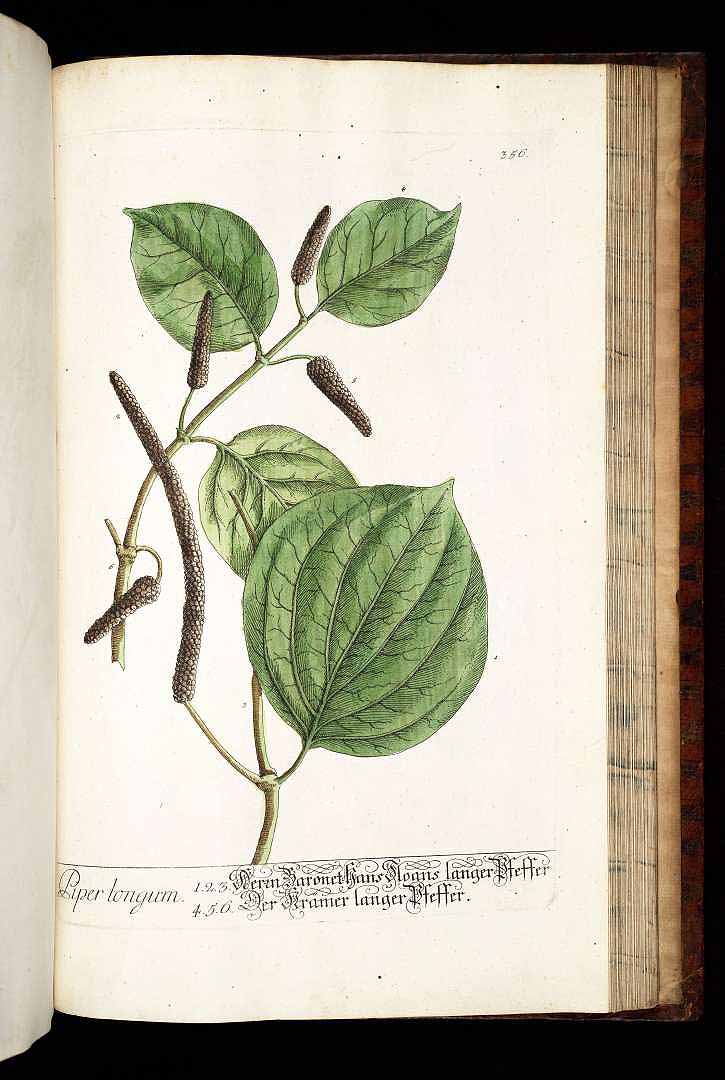 356.
6
5
2
6
1
3
Piper longum.
1.2.3. Herrn Baronet Hans Sloans langer Pfeffer
4.5.6. Der Krämer langer Pfeffer.